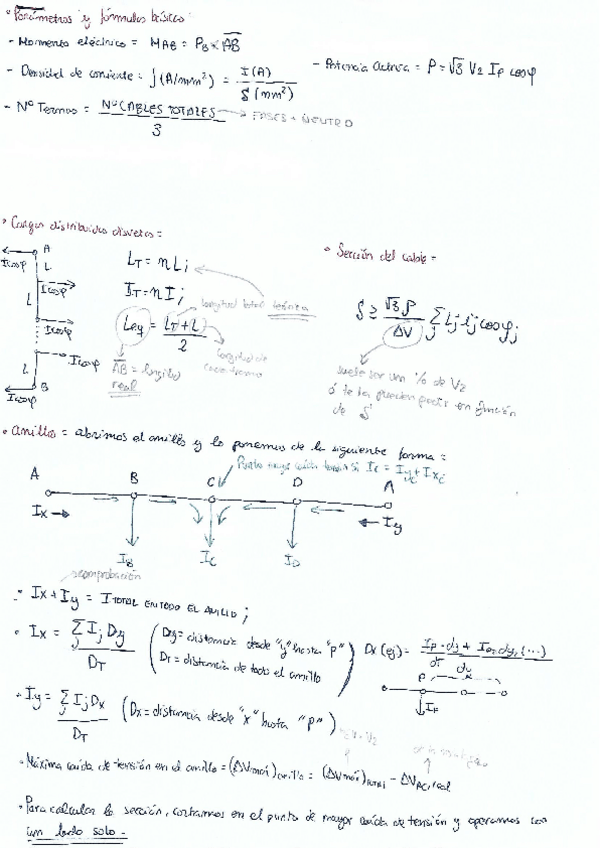 • Parámetros y fórmulas básicas:
- Momento eléctrico = MAB = PB × AB
- Densidad de corriente = j (A/mm²) = I(A) / S(mm²)
- Potencia Activa = P = √3 V2 IF cosφ
- Nº Ternas = Nº CABLES TOTALES / 3 → FASES + NEUTRO
• Cargas distribuidas discretas =
A
Icosφ
L
Icosφ
L
Icosφ
Icosφ
L
B
Icosφ
LT = n Li
IT = n Ii
longitud total teórica
Leq = (LT + L) / 2
AB = longitud real
longitud de cada tramo
• Sección del cable =
S ≥ √3 ρ / ΔV ∑j Lj Ij cosφj
suele ser un % de V2
ó te la pueden pedir en función
de S
• Anillos = abrimos el anillo y lo ponemos de la siguiente forma =
Punto mayor caída tensión si IC = Iyc + Ixc
A B C D A
Ix → ← Iy
IB IC ID
comprobación
• Ix + Iy = I TOTAL EN TODO EL ANILLO ;
• Ix = ∑j Ij Dy / DT (Dy = distancia desde "y" hasta "P"
DT = distancia de todo el anillo)
Dx (ej) =
P
IF
• Iy = ∑j Ij Dx / DT (Dx = distancia desde "x" hasta "P")
• Máxima caída de tensión en el anillo = (ΔVmáx)anillo = (ΔVmáx)total - ΔVAC, real
• Para calcular la sección, cortamos en el punto de mayor caída de tensión y operamos con
un lado solo.-